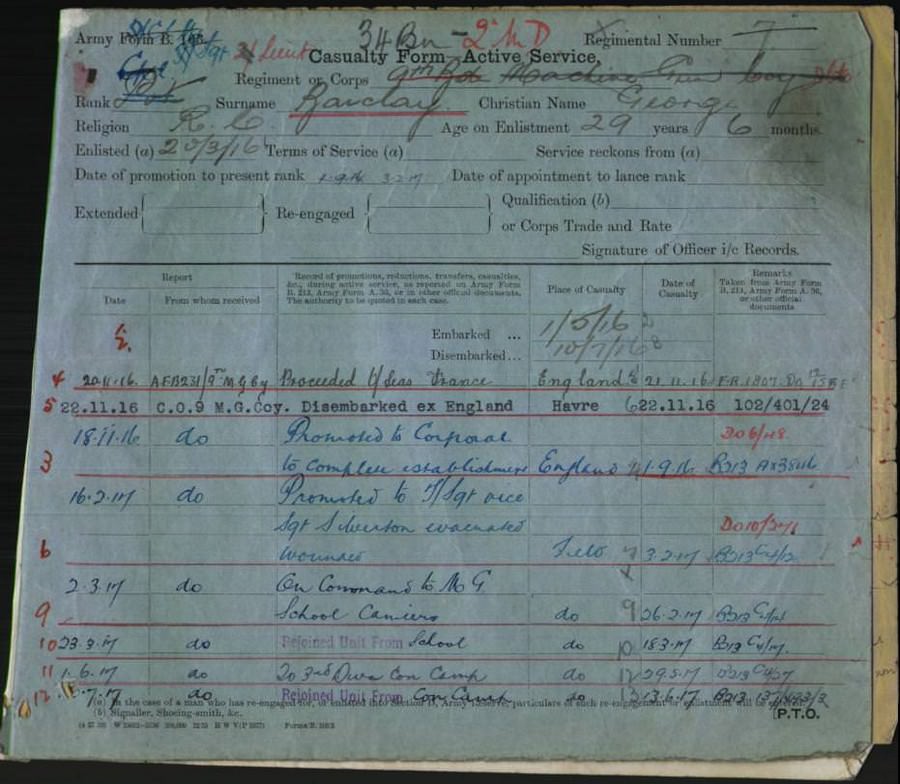 Army Form B. 103.
34 Bn - 2nd MD
Regimental Number 7
Sgt 2/Lieut
Casualty Form—Active Service.
Regiment or Corps Machine Gun Coy
Rank Surname Barclay Christian Name George
Religion R. C. Age on Enlistment 29 years 6 months.
Enlisted (a) 20/3/16 Terms of Service (a) Service reckons from (a)
Date of promotion to present rank 1.9.16 3.2.17 Date of appointment to lance rank
Extended Re-engaged Qualification (b)
or Corps Trade and Rate
Signature of Officer i/c Records.
Report
Date From whom received
Record of promotions, reductions, transfers, casualties, &c., during active service, as reported on Army Form B. 213, Army Form A. 36, or in other official documents. The authority to be quoted in each case.
Place of Casualty
Date of Casualty
Remarks Taken from Army Form B. 213, Army Form A. 36, or other official documents
Embarked ... 1/5/16
Disembarked... 10/7/16
4 20.11.16. AFB231/9TH M.G.Coy Proceeded O/Seas France England 21.11.16.
5 22.11.16 C.O.9 M.G.Coy. Disembarked ex England Havre 22.11.16 102/401/24
18.11.16 do Promoted to Corporal
3 to complete establishment England 1.9.16 B213
16.2.17 do Promoted to T/Sgt vice
Sgt Silverton evacuated
6 wounded Field 3.2.17 B213
2.3.17 do On Command to M G
9 School Camiers do 26.2.17 B213
10 23.3.17 do Rejoined Unit From School do 18.3.17 B213
11 1.6.17 do To 3rd Divn Con Camp do 29.5.17 B213
12 7.17 do Rejoined Unit From Con Camp do 13.6.17 B213
(a) In the case of a man who has re-engaged for, or enlisted into Section D, Army Reserve, particulars of such re-engagement or enlistment will be entered.
(b) Signaller, Shoeing-smith, &c.
P.T.O.